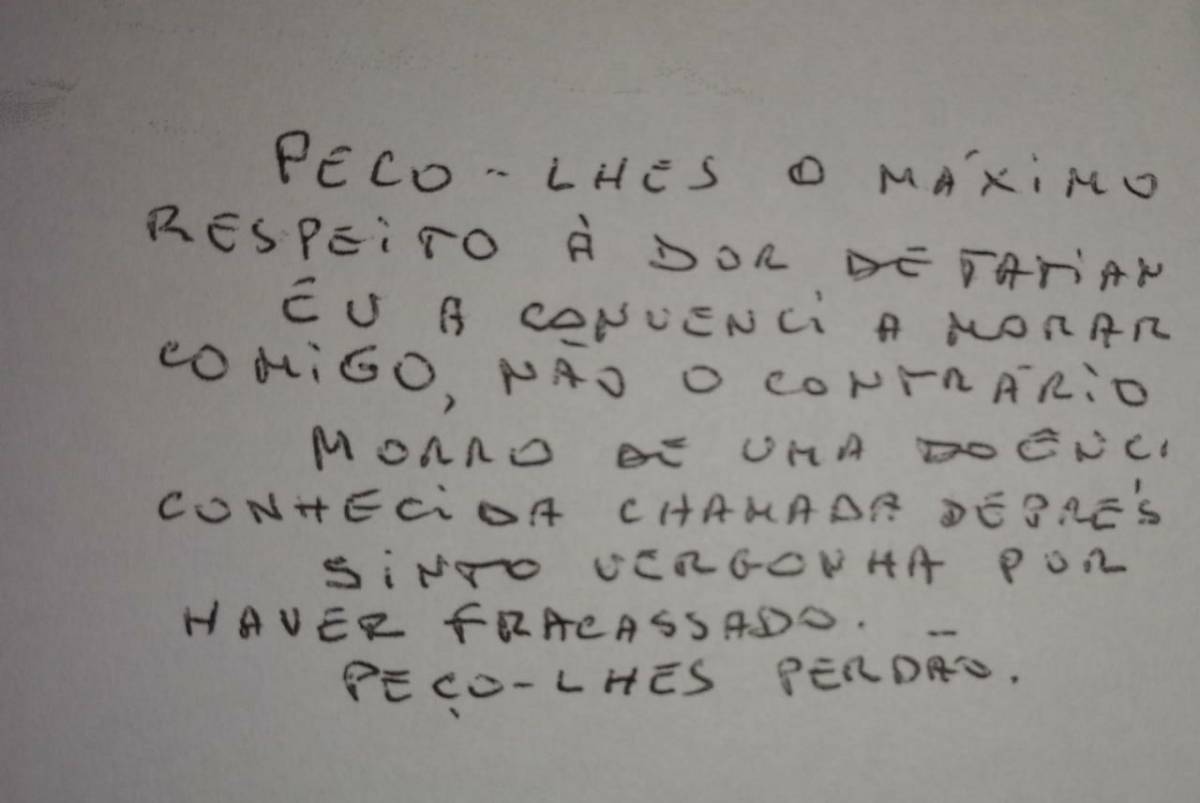 PEÇO-LHES O MÁXIMO
RESPEITO À DOR DE TATIAN
EU A CONVENCI A MORAR
COMIGO, NÃO O CONTRÁRIO
MORRO DE UMA DOENCI
CONHECIDA CHAMADA DEPRES
SINTO VERGONHA POR
HAVER FRACASSADO.
PEÇO-LHES PERDÃO.